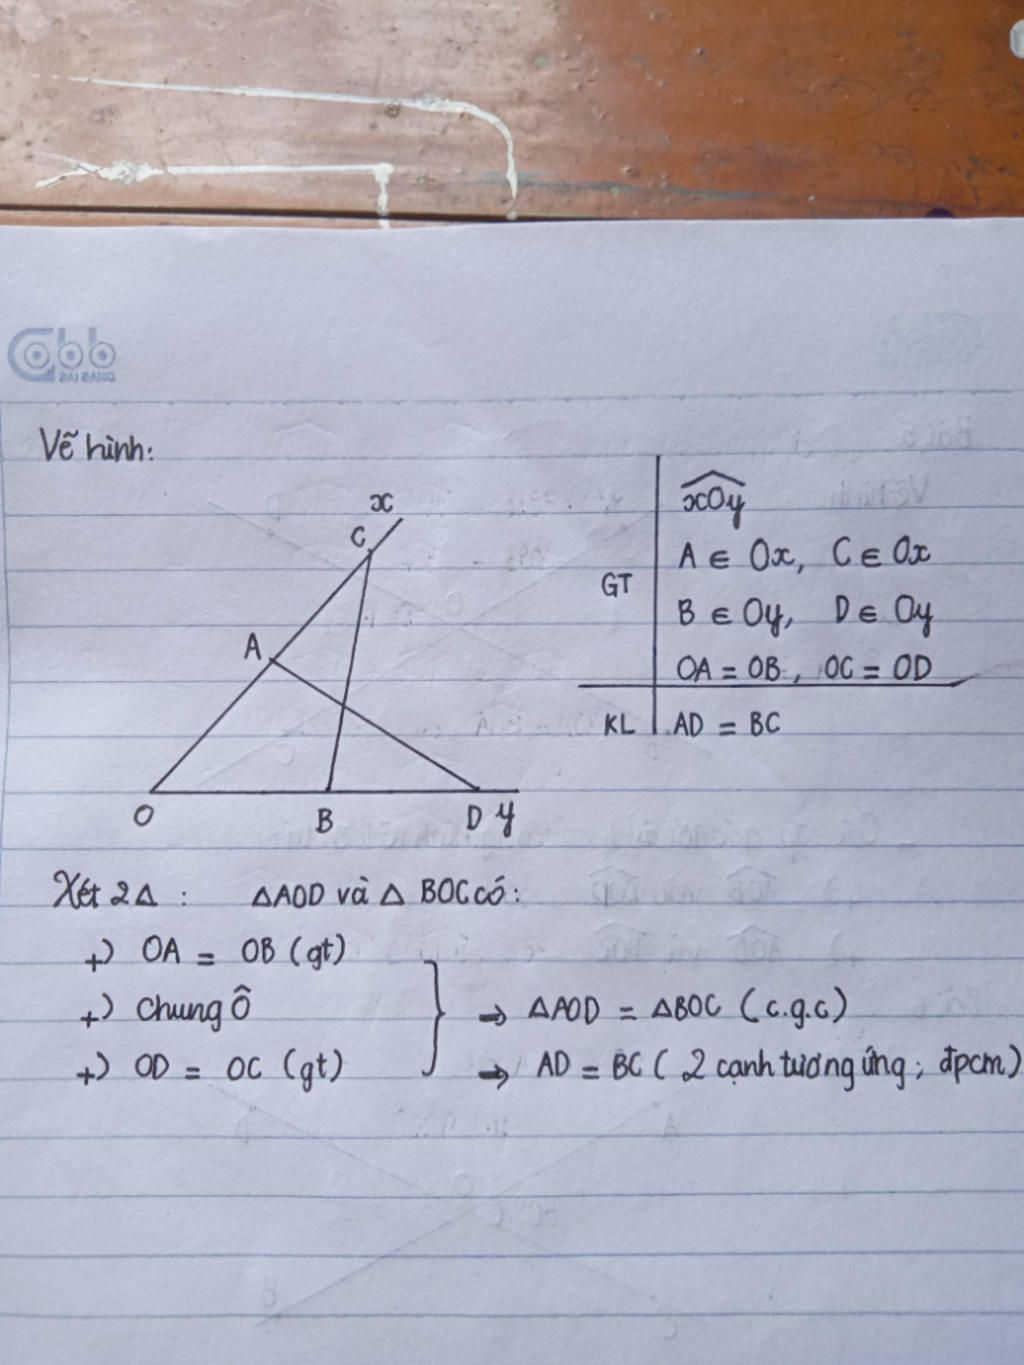 Vẽ hình:
x
C
A
O
B
D y
xOy
A ∈ Ox, C ∈ Ox
GT
B ∈ Oy, D ∈ Oy
OA = OB, OC = OD
KL AD = BC
Xét 2Δ : ΔAOD và Δ BOC có:
+) OA = OB (gt)
+) Chung Ô
+) OD = OC (gt)
⇒ ΔAOD = ΔBOC (c.g.c)
⇒ AD = BC ( 2 cạnh tương ứng ; đpcm)